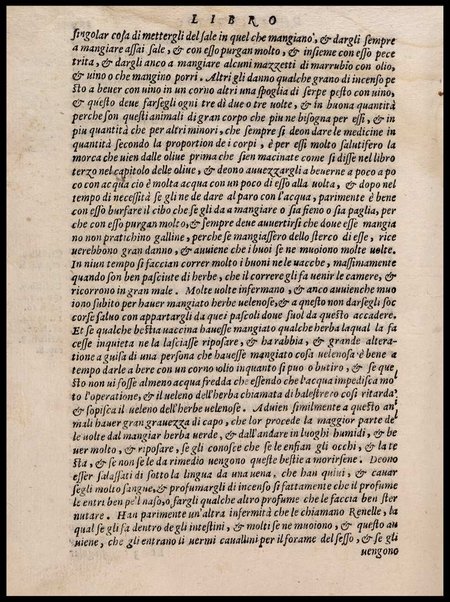 LIBRO
singolar cosa di mettergli del sale in quel che mangiano, & dargli sempre
a mangiare assai sale, & con esso purgan molto, & insieme con esso pece
trita, & dargli anco a mangiare alcuni mazzetti di marrubio con olio,
& uino o che mangino porri. Altri gli danno qualche grano di incenso pe
sto a beuer con uino in un corno altri una spoglia di serpe pesto con uino,
& questo deue farsegli ogni tre dì due o tre uolte, & in buona quantità
perche son questi animali di gran corpo che piu ne bisogna per essi, & in
piu quantità che per altri minori, che sempre si deon dare le medicine in
quantità secondo la proportion de i corpi, è per essi molto salutifero la
morca che uien dalle oliue prima che sien macinate come si disse nel libro
terzo nel capitolo delle oliue, & deono auuezzargli a beuerne a poco a po
co con acqua cio è molta acqua con un poco di esso alla uolta, & dopo nel
tempo di necessità se gli ne de dare al paro con l'acqua, parimente è bene
con esso bursare il cibo che se gli da a mangiare o sia fieno o sia paglia, per
che con esso purgan molto, & sempre deue auuertirsi che doue essi mangia
no non pratichino galline, perche se mangiassero dello sterco di esse, rice
uerebbono gran danno, & auuiene che i buoi se ne muoiono molte uolte.
In niun tempo si faccian correr molto i buoni ne le uacche, massimamente
quando son ben pasciute di herbe, che il correre gli fa uenir le camere, &
ricorrono in gran male. Molte uolte infermano, & anco auuienche muo
iono subito per hauer mangiato herbe uelenose, & a questo non darsegli soc
corse saluo con appartargli da quei pascoli doue suol da questo accadere.
Et se qualche bestia uaccina hauesse mangiato qualche herba laqual la fa
cesse inquieta ne la lasciasse riposare, & ha rabbia, & grande altera-
tione a guisa di una persona che hauesse mangiato cosa uelenosa è bene a
tempo darle a bere con un corno olio inquanto si puo o butiro, & se que
sto non ui fosse almeno acqua fredda che essendo che l'acqua impedisca mo
to l'operatione, & il ueleno dell'herba chiamata di balestreco così ritarda
& sopisca il ueleno dell'herbe uelenose. Aduien similmente a questo ani
mali hauer gran grauezza di capo, che lor procede la maggior parte del
le uolte dal mangiar herba uerde, & dall'andare in luoghi humidi, & be
uer molto, & riposare, se gli conosce che se le enfian gli occhi, & la te
sta, & se non se le da rimedio uengono queste bestie a morirsene. Deono
esser salassati di sotto la lingua da una uena, che han quiui, & cauar
segli molto sangue, & profumargli di incenso sì fattamente che il profume
le entri ben pe'l naso, o fargli qualche altro profume che le faccia ben ster
nutare. Han parimente un'altra infermità che le chiamano Renelle, la
qual se gli fa dentro de gli intestini, & molti se ne muoiono, & questo au
uiene, che gli entrano li uermi cauallini per il forame del sesso, & se gli
uengono